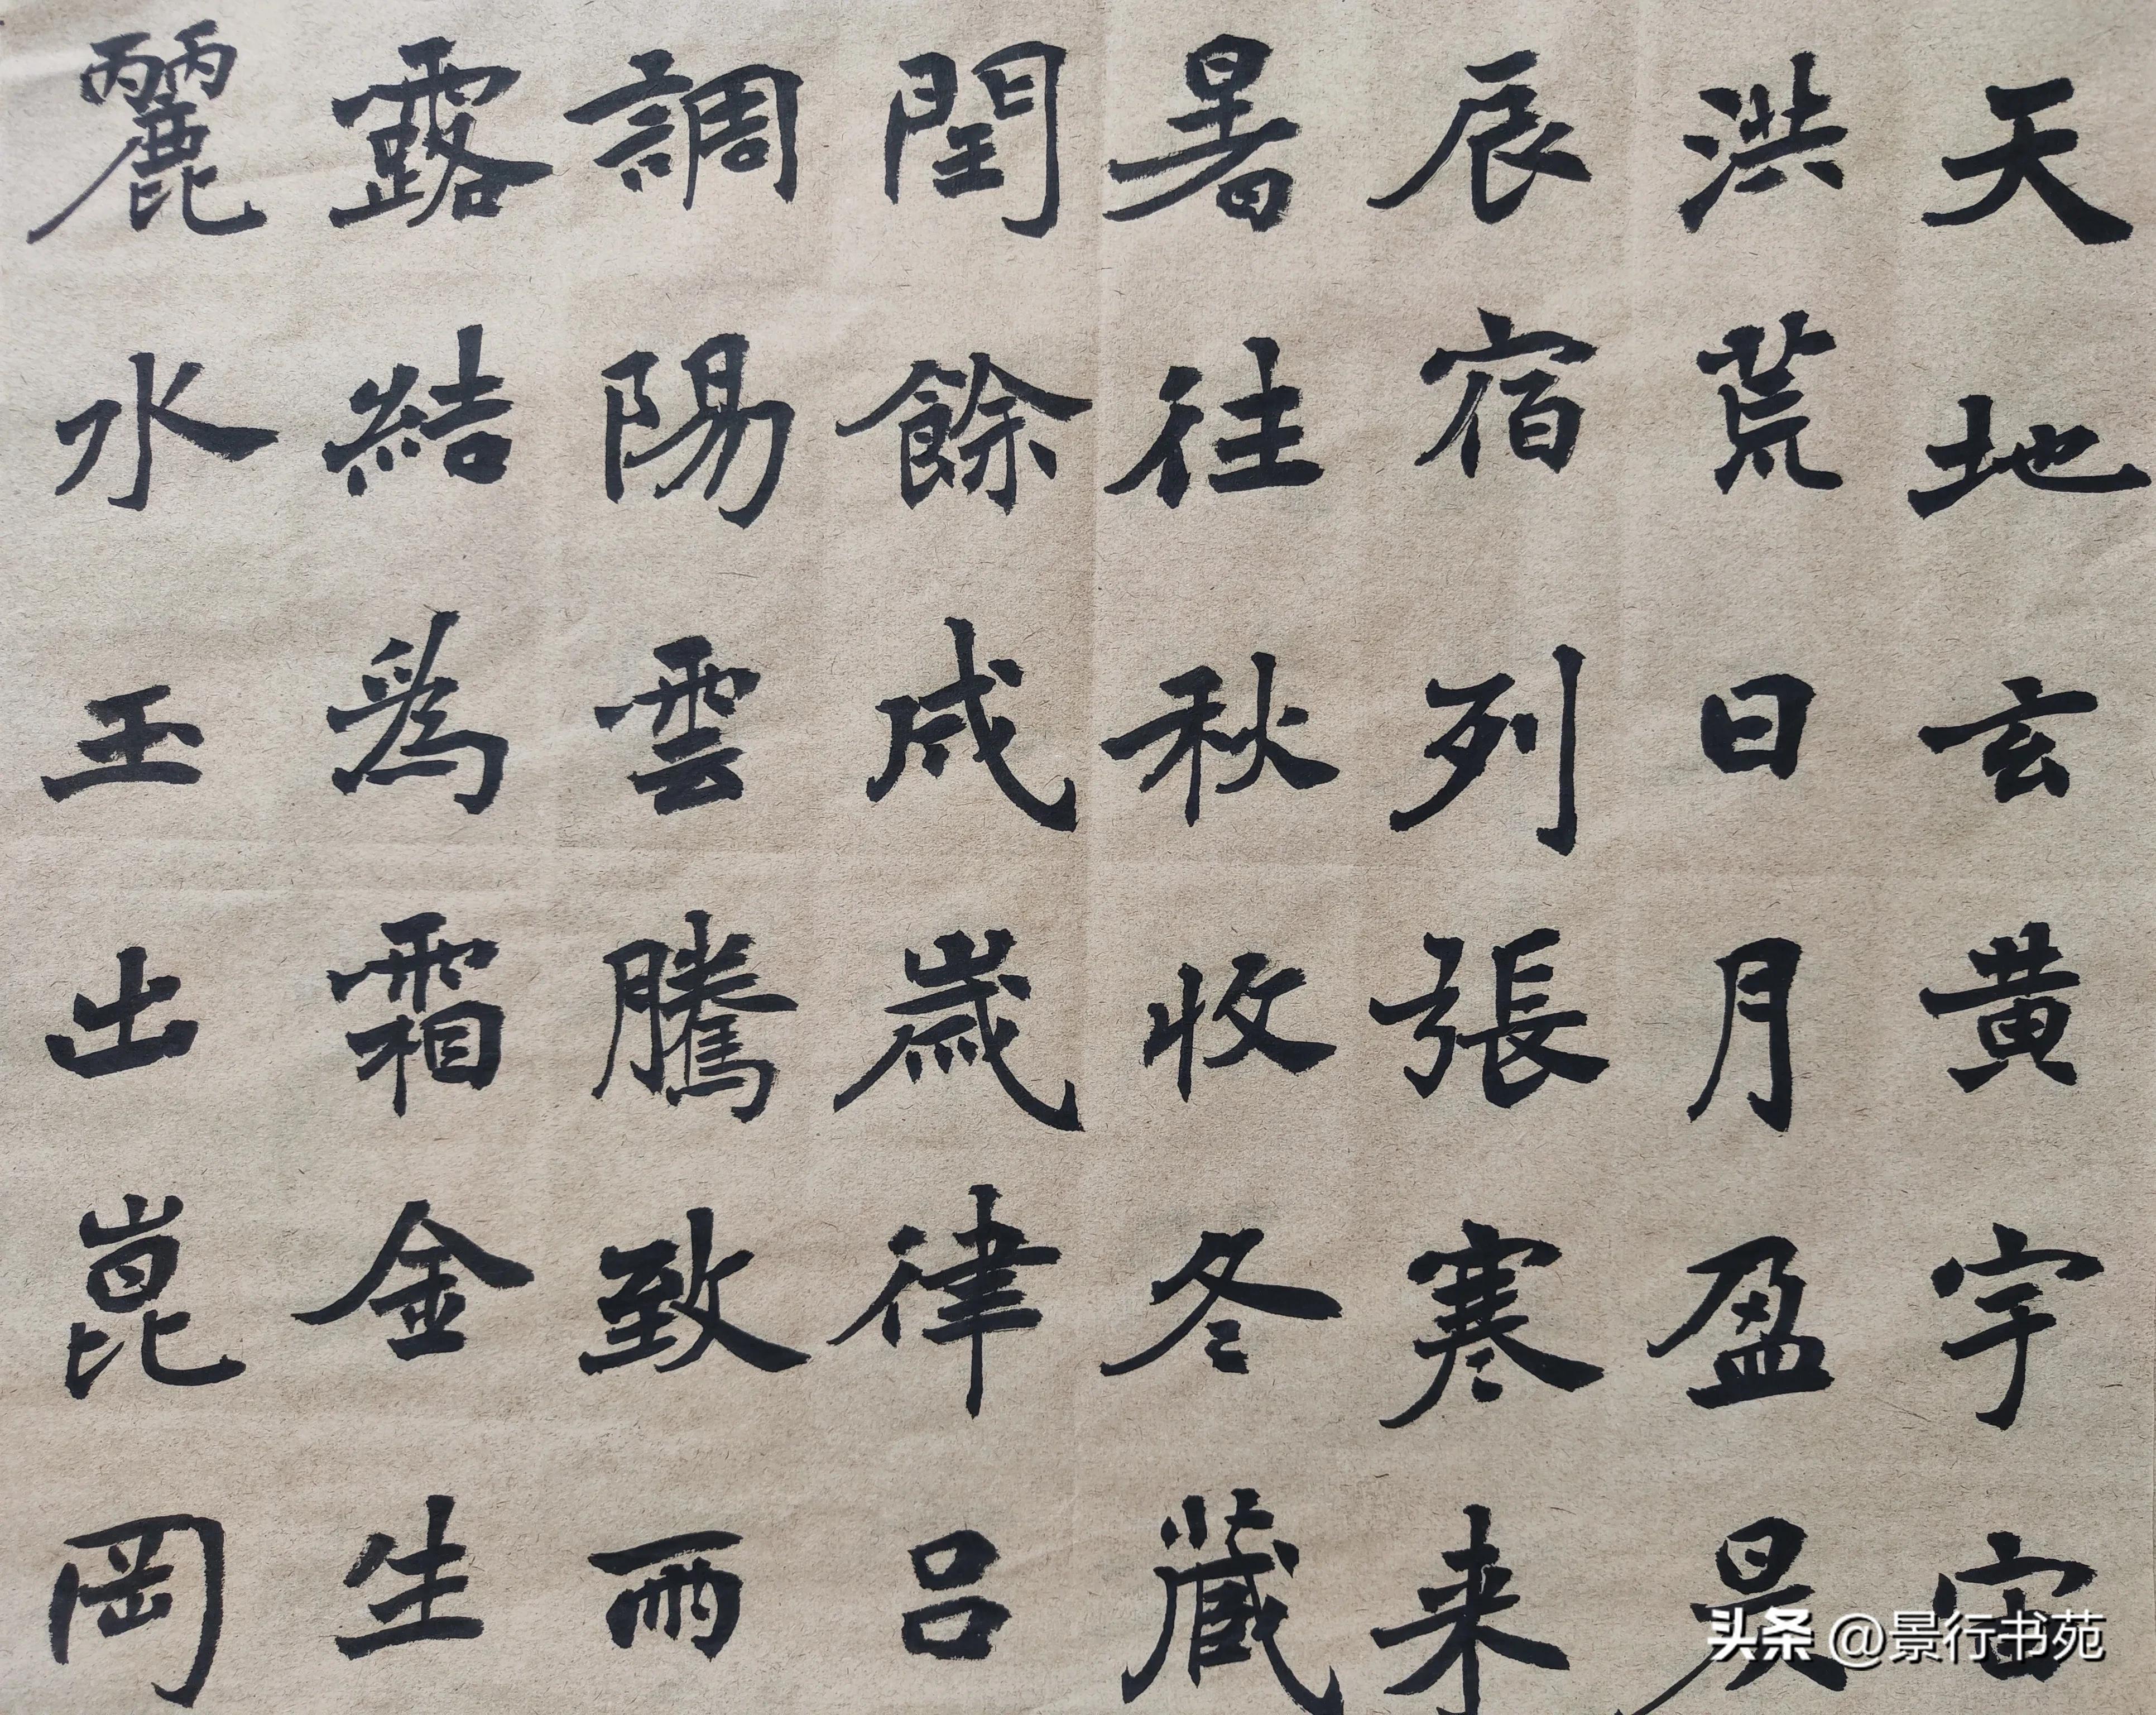 天地玄黄宇宙
洪荒日月盈昃
辰宿列張寒来
暑往秋收冬藏
閏餘成歲律吕
調陽雲騰致雨
露結爲霜金生
麗水玉出崑岡
头条 @景行书苑